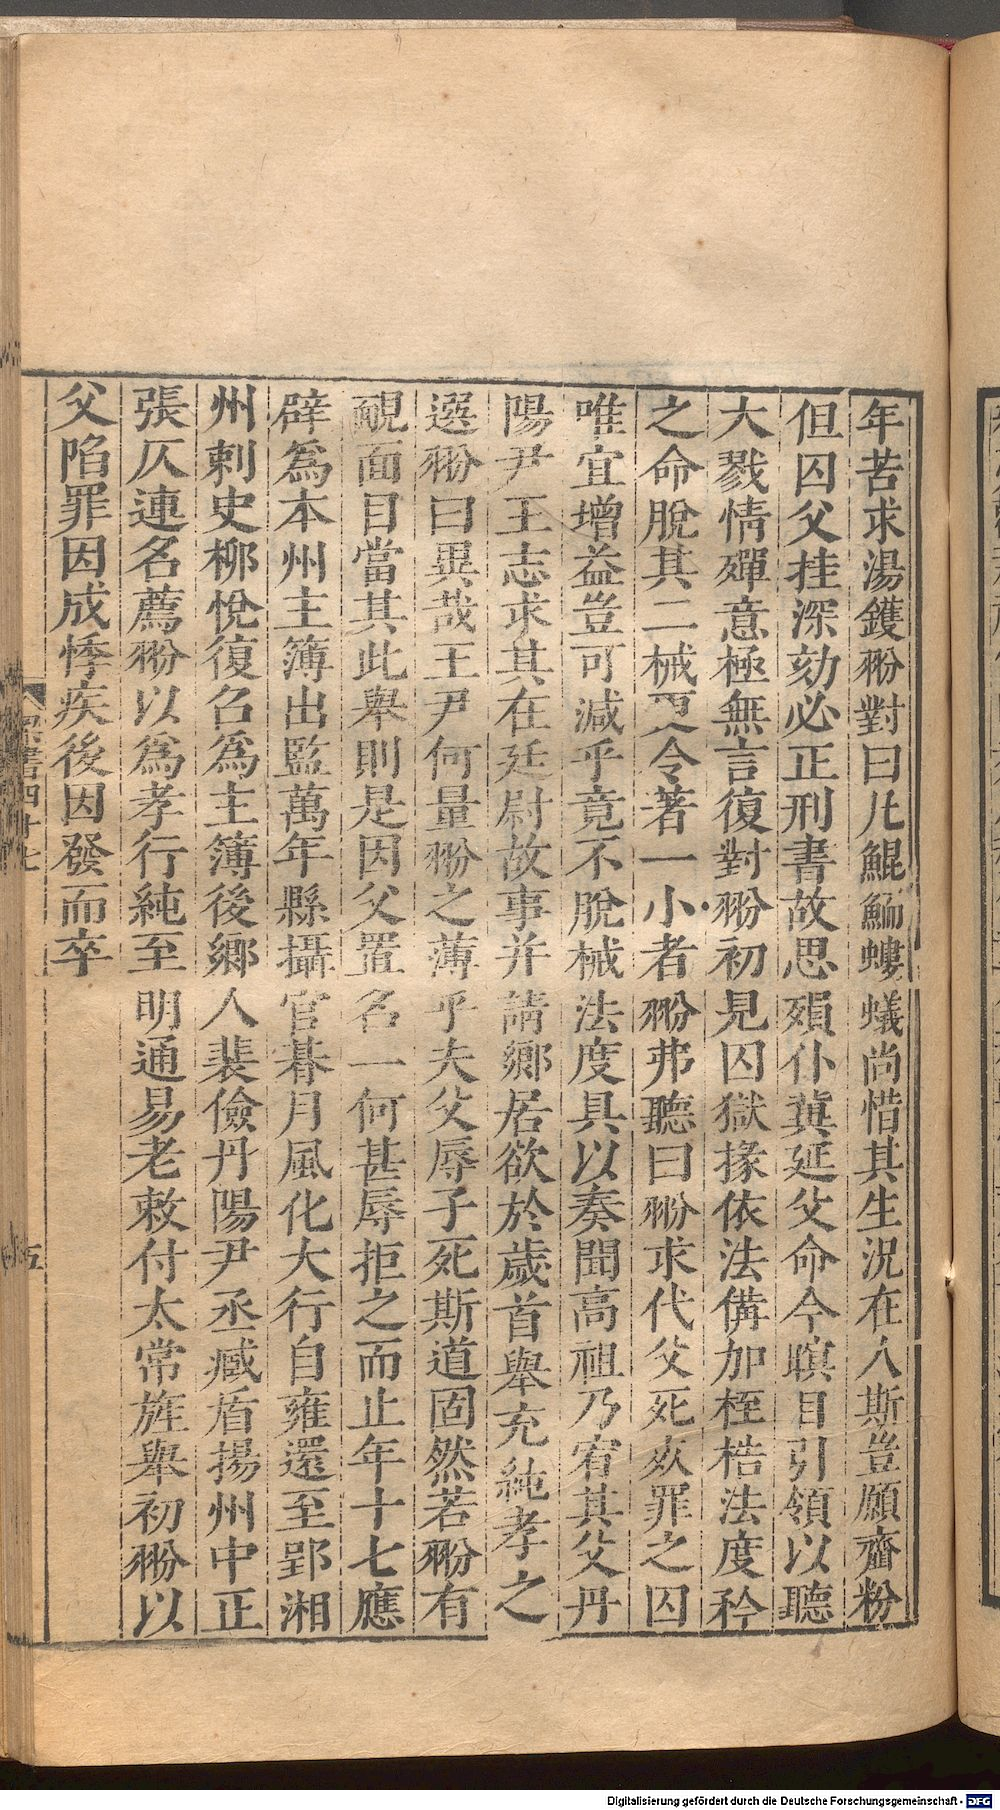 年苦求湯鑊翂對曰凡鯤鮞螻蟻尚惜其生況在人斯豈願齏粉
但囚父挂深劾必正刑書故思殞仆冀延父命今瞑目引領以聽
大戮情殫意極無言復對翂初見囚獄掾依法備加桎梏法度矜
之命脫其二械更令著一小者翂弗聽曰翂求代父死死罪之囚
唯宜增益豈可減乎竟不脫械法度具以奏聞高祖乃宥其父丹
陽尹王志求其在廷尉故事并請鄉居欲於歲首舉充純孝之
選翂曰異哉王尹何量翂之薄乎夫父辱子死斯道固然若翂有
靦面目當其此舉則是因父買名一何甚辱拒之而止年十七應
辟爲本州主簿出監萬年縣攝官朞月風化大行自雍還至郢湘
州刺史柳悅復召爲主簿後鄉人裴儉丹陽尹丞臧盾揚州中正
張仄連名薦翂以爲孝行純至明通易老敕付太常旌舉初翂以
父陷罪因成悸疾後因發而卒
梁書四十七
五
Digitalisierung gefördert durch die Deutsche Forschungsgemeinschaft - DFG